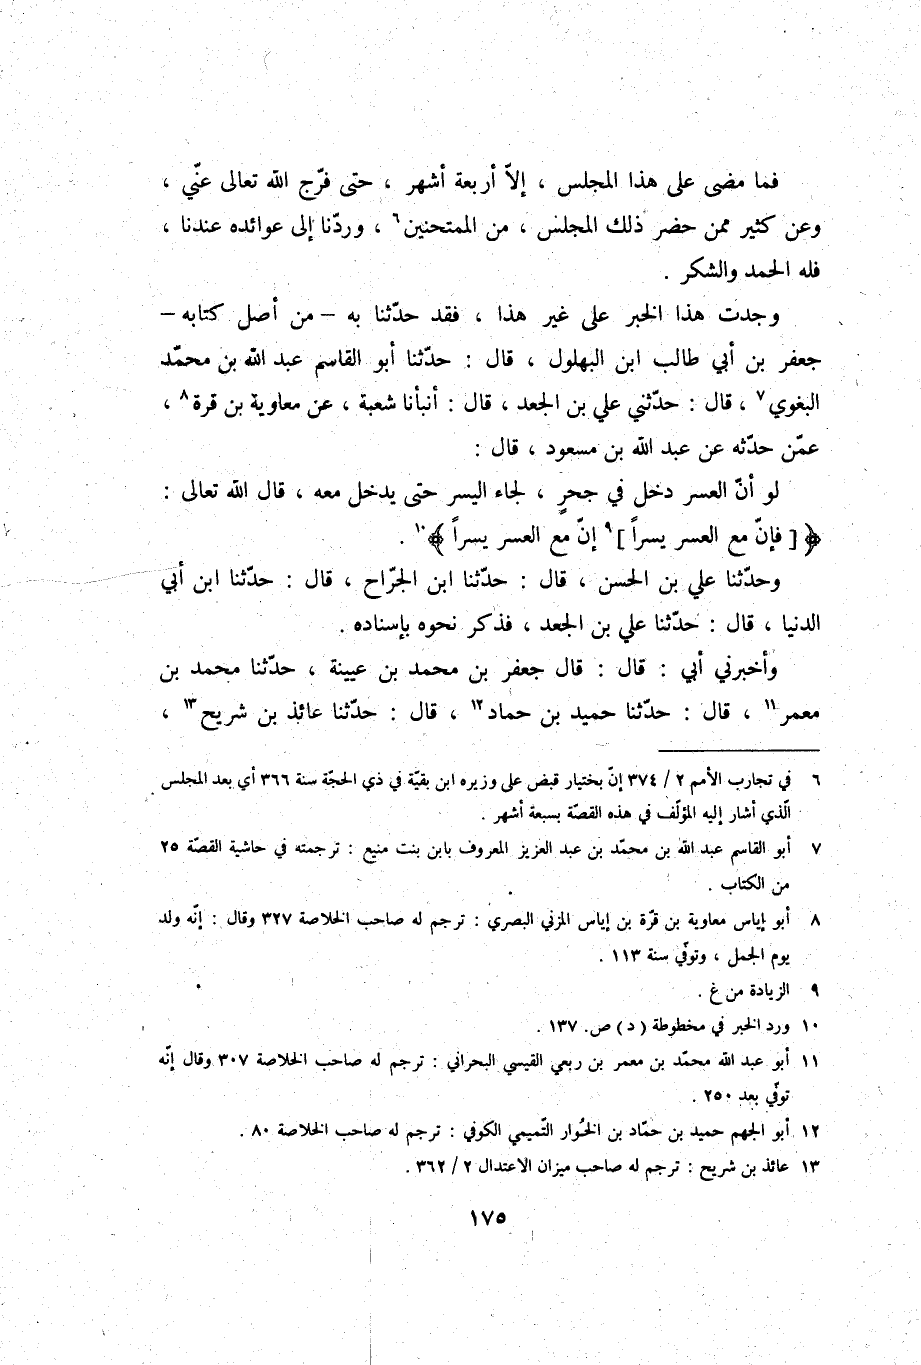 فما مضى على هذا المجلس ، إلاّ أربعة أشهر ، حتى فرّج الله تعالى عنّي ،
وعن كثير ممن حضر ذلك المجلس ، من الممتحنين٦ ، وردّنا إلى عوائده عندنا ،
فله الحمد والشكر .
وجدت هذا الخبر على غير هذا ، فقد حدّثنا به – من أصل كتابه –
جعفر بن أبي طالب ابن البهلول ، قال : حدّثنا أبو القاسم عبد الله بن محمّد
البغوي٧ ، قال : حدّثني علي بن الجعد ، قال : أنبأنا شعبة ، عن معاوية بن قرة٨ ،
عمّن حدّثه عن عبد الله بن مسعود ، قال :
لو أنّ العسر دخل في جحرٍ ، لجاء اليسر حتى يدخل معه ، قال الله تعالى :
﴿ [ فإنّ مع العسر يسراً ]٩ إنّ مع العسر يسراً ﴾١٠ .
وحدّثنا علي بن الحسن ، قال : حدّثنا ابن الجرّاح ، قال : حدّثنا ابن أبي
الدنيا ، قال : حدّثنا علي بن الجعد ، فذكر نحوه بإسناده .
وأخبرني أبي : قال : قال جعفر بن محمد بن عيينة ، حدّثنا محمد بن
معمر١١ ، قال : حدّثنا حميد بن حماد١٢ ، قال : حدّثنا عائذ بن شريح١٣ ،
٦ في تجارب الأمم ٢ / ٣٧٤ إنّ بختيار قبض على وزيره ابن بقيّة في ذي الحجّة سنة ٣٦٦ أي بعد المجلس
الّذي أشار إليه المؤلّف في هذه القصّة بسبعة أشهر .
٧ أبو القاسم عبد الله بن محمّد بن عبد العزيز المعروف بابن بنت منيع : ترجمته في حاشية القصّة ٢٥
من الكتاب .
٨ أبو إياس معاوية بن قرّة بن إياس المزني البصري : ترجم له صاحب الخلاصة ٣٢٧ وقال : إنّه ولد
يوم الجمل ، وتوفّي سنة ١١٣ .
٩ الزيادة من غ .
١٠ ورد الخبر في مخطوطة ( د ) ص. ١٣٧ .
١١ أبو عبد الله محمّد بن معمر بن ربعي القيسي البحراني : ترجم له صاحب الخلاصة ٣٠٧ وقال إنّه
توفّي بعد ٢٥٠ .
١٢ أبو الجهم حميد بن حمّاد بن الخُوار التّميمي الكوفي : ترجم له صاحب الخلاصة ٨٠ .
١٣ عائذ بن شريح : ترجم له صاحب ميزان الاعتدال ٢ / ٣٦٢ .
١٧٥